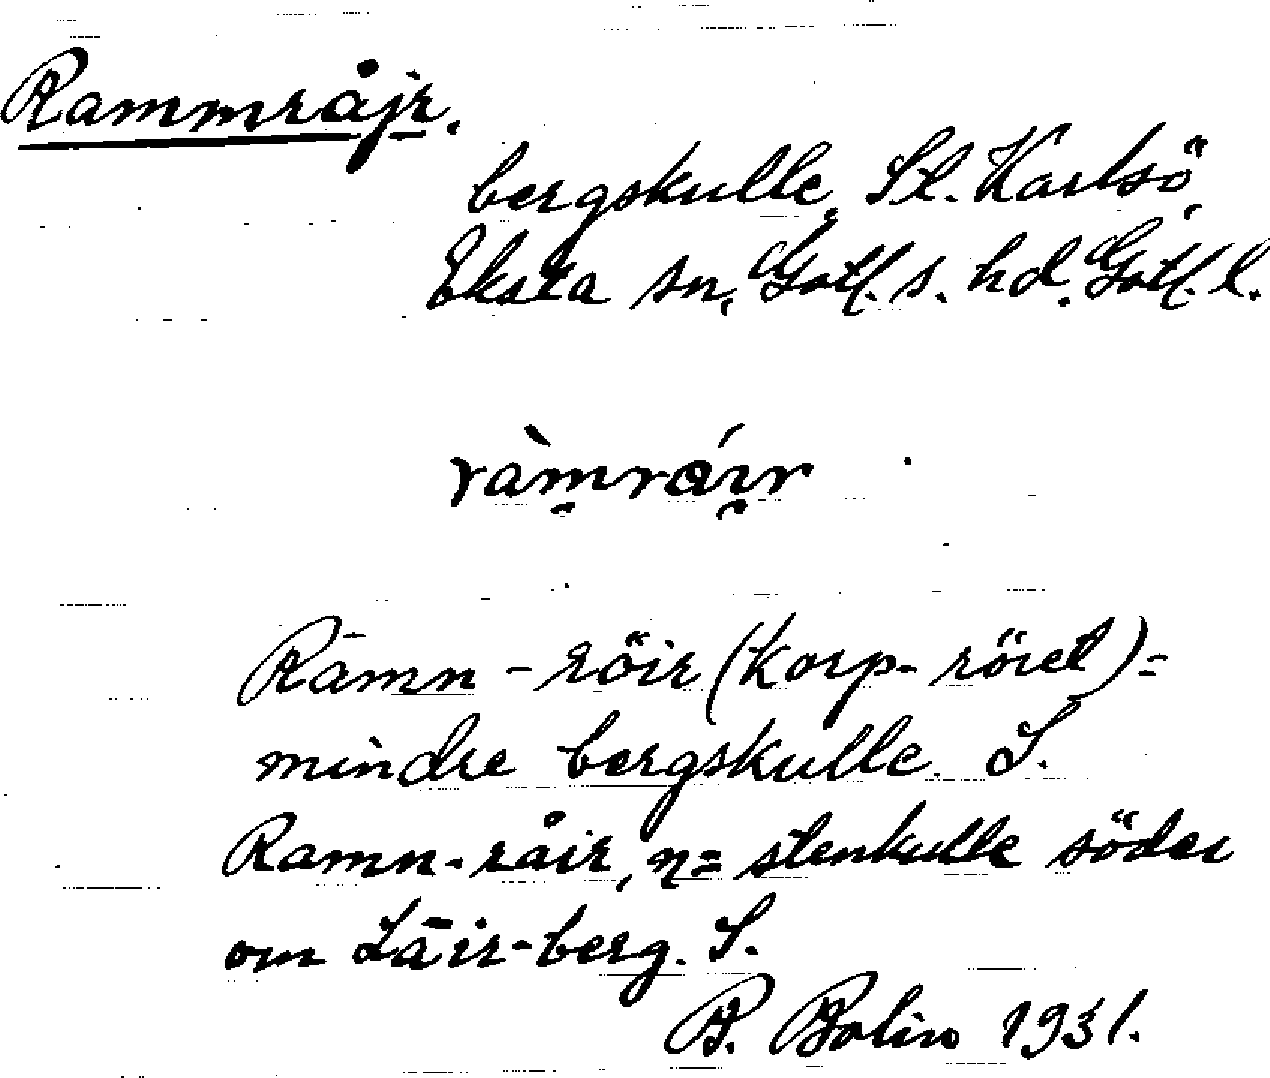 Rammråjr.
bergskulle, St. Karlsö,
Eksta sn, Gotl. s. hd. Gotl. l.
ràmråir
Ramn - röir (korp- röret) =
mindre bergskulle. S.
Ramn-råir, n = stenkulle söder
om Läir-berg. S.
P. Bolin 1931.